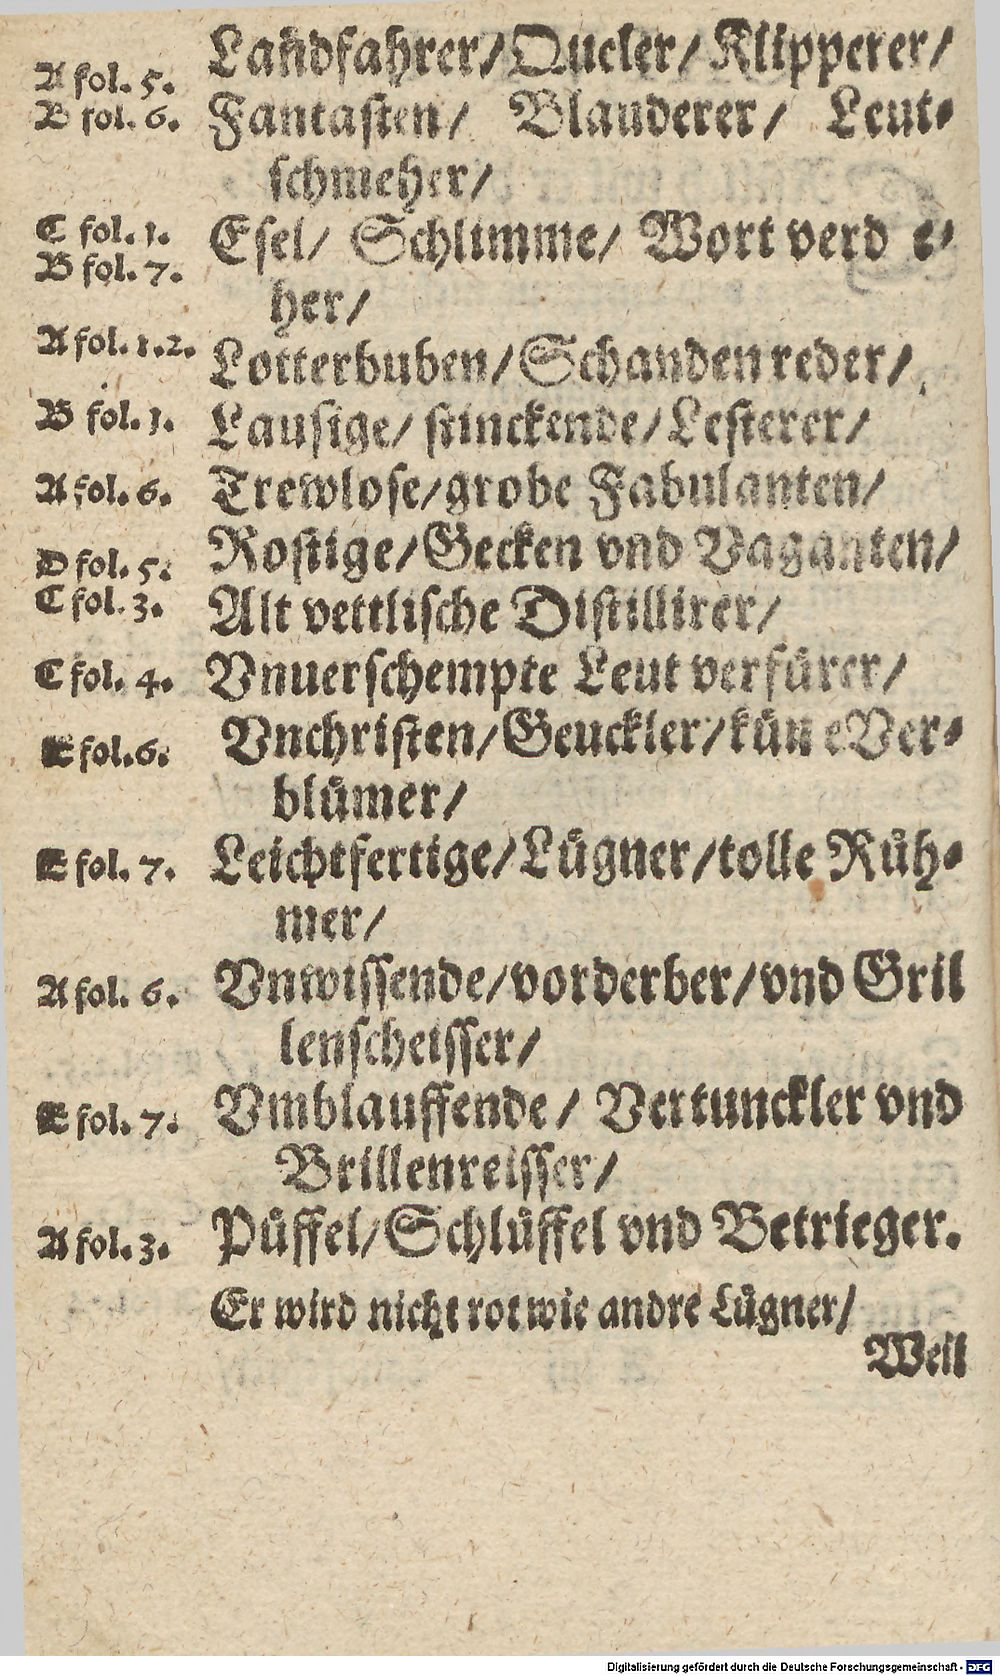 Landfahrer/ Queler/ Klipperer/
A fol. 5.
B fol. 6. Fantasten/ Blauderer/ Leut-
schmeher/
C fol. 1. Esel/ Schlimme/ Wort verd e-
B fol. 7.
her/
A fol. 1.2. Lotterbuben/ Schanden reder/
B fol. 1. Lausige/ stinckende/ Lesterer/
A fol. 6. Trewlose/ grobe Fabulanten/
D fol. 5. Rostige/ Gecken vnd Vaganten/
C fol. 3. Alt vettlische Distillirer/
C fol. 4. Vnuerschempte Leut verfürer/
E fol. 6. Vnchristen/ Geuckler/ kün e Ver-
blümer/
E fol. 7. Leichtfertige/ Lügner/ tolle Rüh-
mer/
A fol. 6. Vnwissende/ vorderber/ vnd Gril
lenscheisser/
E fol. 7. Vmblauffende/ Vertunckler vnd
Brillenreisser/
A fol. 3. Püffel/ Schlüffel vnd Betrieger.
Er wird nicht rot wie andre Lügner/
Weil
Digitalisierung gefördert durch die Deutsche Forschungsgemeinschaft - DFG